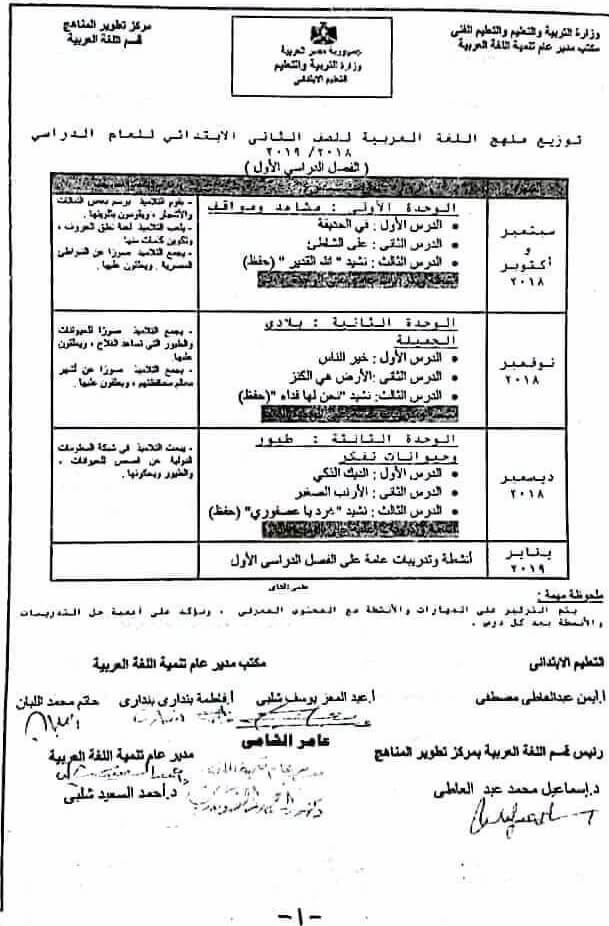 وزارة التربية والتعليم والتعليم الفنى
مكتب مدير عام تنمية اللغة العربية
جمهورية مصر العربية
وزارة التربية والتعليم
التعليم الابتدائى
مركز تطوير المناهج
قسم اللغة العربية
توزيع منهج اللغة العربية للصف الثانى الابتدائي للعام الدراسي
٢٠١٨/ ٢٠١٩
( الفصل الدراسي الأول )
سبتمبر
و
أكتوبر
٢٠١٨
الوحدة الأولى : مشاهد ومواقف
• الدرس الأول : في الحديقة
• الدرس الثانى : على الشاطئ
• الدرس الثالث : نشيد " الله القدير " (حفظ)
- يقوم التلاميذ برسم بعض النباتات
والأشجار ، ويقومون بتلوينها .
- يلعب التلاميذ لعبة نطق الحروف ،
وتكوين كلمات منها
- يجمع التلاميذ صورًا عن الشواطئ
المصرية . ويعلقون عليها .
نوفمبر
٢٠١٨
الوحدة الثانية : بلادى
الجميلة
• الدرس الأول : خير الناس
• الدرس الثانى :الأرض هي الكنز
• الدرس الثالث: نشيد "نحن لها فداء "(حفظ)
- يجمع التلاميذ صورًا للحيوانات
والطيور التى تساعد الفلاح ، ويعلقون
عليها.
- يجمع التلاميذ صورًا عن أشهر
معالم محافظتهم ، ويعلقون عليها .
ديسمبر
٢٠١٨
الوحدة الثالثة : طيور
وحيوانات تفكر
• الدرس الأول : الديك الذكي
• الدرس الثانى : الأرنب الصغير
• الدرس الثالث : نشيد "غرد يا عصفوري" (حفظ)
- يبحث التلاميذ في شبكة المعلومات
الدولية عن قصص للحيوانات ،
والطيور ويحكونها .
يناير
٢٠١٩
أنشطة وتدريبات عامة على الفصل الدراسى الأول
ملحوظة مهمة :
يتم التركيز على المهارات والأنشطة مع المحتوى المعرفى ، ونؤكد على أهمية حل التدريبات
والأنشطة بعد كل درس .
التعليم الابتدائى
مكتب مدير عام تنمية اللغة العربية
أ.أيمن عبدالعاطى مصطفى
أ.عبد المعز يوسف شلبى
أ.فاطمة بندارى بندارى
حاتم محمد اللبان
عامر الشامى
رئيس قسم اللغة العربية بمركز تطوير المناهج
مدير عام تنمية اللغة العربية
د.إسماعيل محمد عبد العاطى
د.أحمد السعيد شلبى
-١-